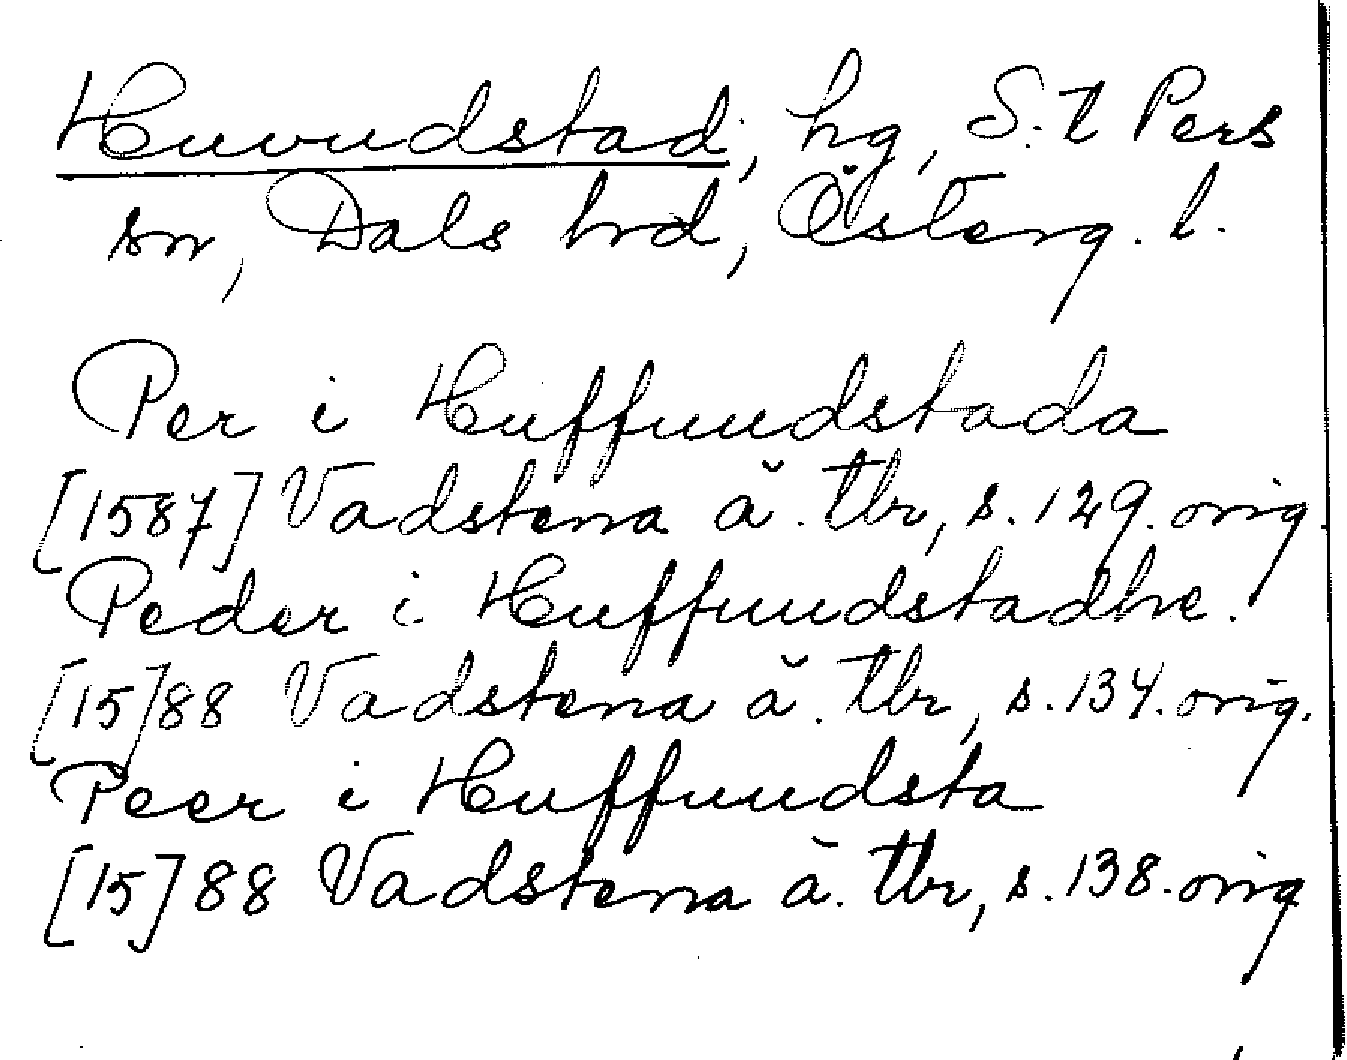 Huvudstad, hg, S:t Pers
sn, Dals hrd, Österg. l.
Per i Huffuudstada
[1587] Vadstena ä. tbr, s. 129. orig.
Peder i Huffuudstadhe.
[15]88 Vadstena ä. tbr, s. 134. orig.
Peer i Huffuudsta
[15]88 Vadstena ä. tbr, s. 138. orig